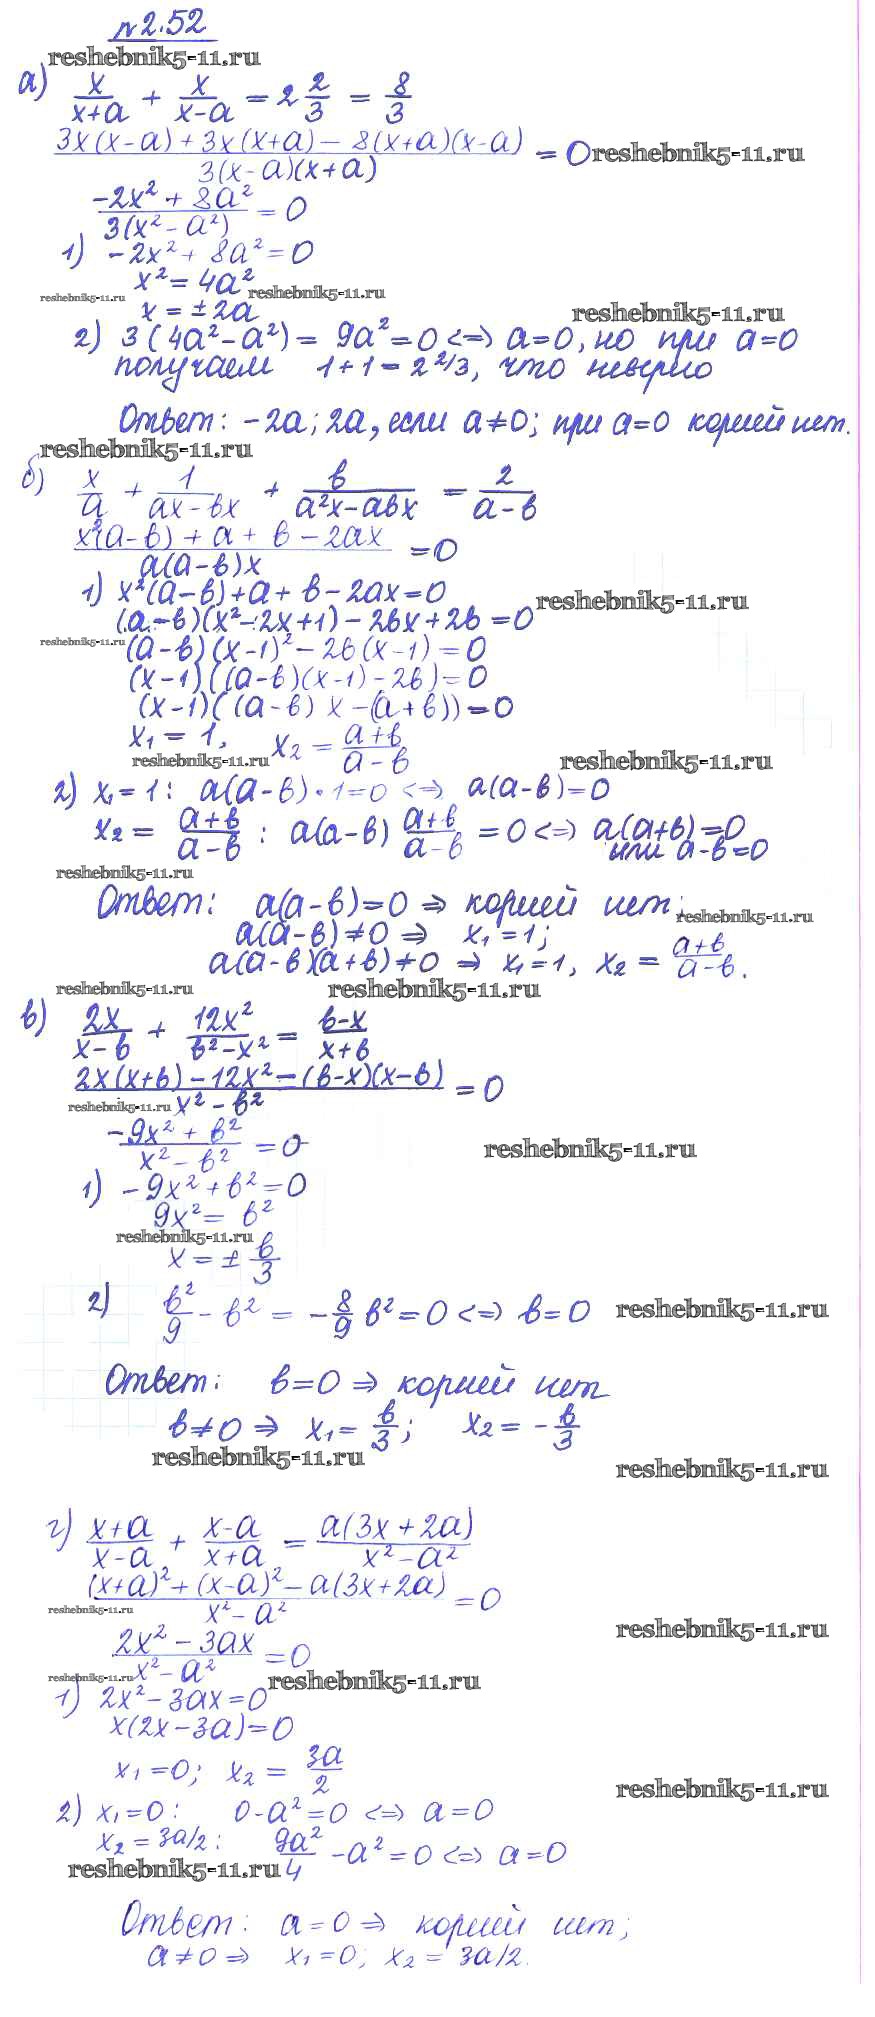 №2.52
reshebnik5-11.ru
а) x/(x+a) + x/(x-a) = 2 2/3 = 8/3
(3x(x-a) + 3x(x+a) - 8(x+a)(x-a))/(3(x-a)(x+a)) = 0 reshebnik5-11.ru
(-2x² + 8a²)/(3(x² - a²)) = 0
1) -2x² + 8a² = 0
x² = 4a²
reshebnik5-11.ru reshebnik5-11.ru
x = ±2a reshebnik5-11.ru
2) 3(4a² - a²) = 9a² = 0 <=> a=0, но при a=0
получаем 1+1 = 2 2/3, что неверно
Ответ: -2a; 2a, если a≠0; при a=0 корней нет.
reshebnik5-11.ru
б) x/a + 1/(ax-bx) + b/(a²x-abx) = 2/(a-b)
(x²(a-b) + a + b - 2ax)/(a(a-b)x) = 0
1) x²(a-b) + a + b - 2ax = 0
reshebnik5-11.ru
(a-b)(x²-2x+1) - 2bx + 2b = 0
reshebnik5-11.ru (a-b)(x-1)² - 2b(x-1) = 0
(x-1)((a-b)(x-1) - 2b) = 0
(x-1)((a-b)x - (a+b)) = 0
x₁ = 1, x₂ = (a+b)/(a-b)
reshebnik5-11.ru reshebnik5-11.ru
2) x₁ = 1: a(a-b)·1 = 0 <=> a(a-b) = 0
x₂ = (a+b)/(a-b) : a(a-b) (a+b)/(a-b) = 0 <=> a(a+b) = 0
или a-b = 0
reshebnik5-11.ru
Ответ: a(a-b) = 0 => корней нет;
reshebnik5-11.ru
a(a-b) ≠ 0 => x₁ = 1;
a(a-b)(a+b) ≠ 0 => x₁ = 1, x₂ = (a+b)/(a-b).
reshebnik5-11.ru reshebnik5-11.ru
в) 2x/(x-b) + 12x²/(b²-x²) = (b-x)/(x+b)
(2x(x+b) - 12x² - (b-x)(x-b))/(x² - b²) = 0
reshebnik5-11.ru
(-9x² + b²)/(x² - b²) = 0
reshebnik5-11.ru
1) -9x² + b² = 0
9x² = b²
reshebnik5-11.ru
x = ± b/3
2) b²/9 - b² = -8/9 b² = 0 <=> b = 0 reshebnik5-11.ru
Ответ: b=0 => корней нет
b≠0 => x₁ = b/3; x₂ = -b/3
reshebnik5-11.ru
reshebnik5-11.ru
г) (x+a)/(x-a) + (x-a)/(x+a) = a(3x+2a)/(x²-a²)
((x+a)² + (x-a)² - a(3x+2a))/(x² - a²) = 0
reshebnik5-11.ru
reshebnik5-11.ru
(2x² - 3ax)/(x² - a²) = 0
reshebnik5-11.ru reshebnik5-11.ru
1) 2x² - 3ax = 0
x(2x-3a) = 0
x₁ = 0; x₂ = 3a/2
reshebnik5-11.ru
2) x₁=0: 0-a² = 0 <=> a = 0
x₂ = 3a/2: 9a²/4 - a² = 0 <=> a = 0
reshebnik5-11.ru
Ответ: a=0 => корней нет;
a≠0 => x₁ = 0; x₂ = 3a/2.